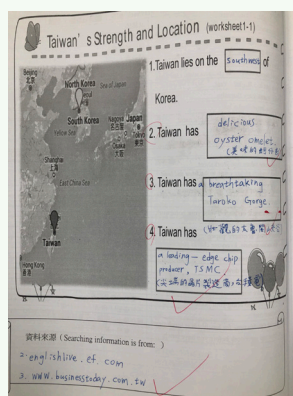 Taiwan's Strength and Location (worksheet1-1)
Beijing
北京
North Korea
Seoul
Sea of Japan
South Korea
Nagoya
名古屋
Japan
Tokyo
東京
Osaka
大阪
Yellow Sea
Shanghai
上海
East China Sea
Taiwan
Hong Kong
香港
1.Taiwan lies on the southwest of
Korea.
2. Taiwan has delicious
oyster omelet.
3. Taiwan has a breathtaking
Taroko Gorge.
4. Taiwan has
a leading-edge chip
producer, TSMC
資料來源（Searching information is from: ）
2. englishlive.ef com
3. www.businesstoday.com.tw